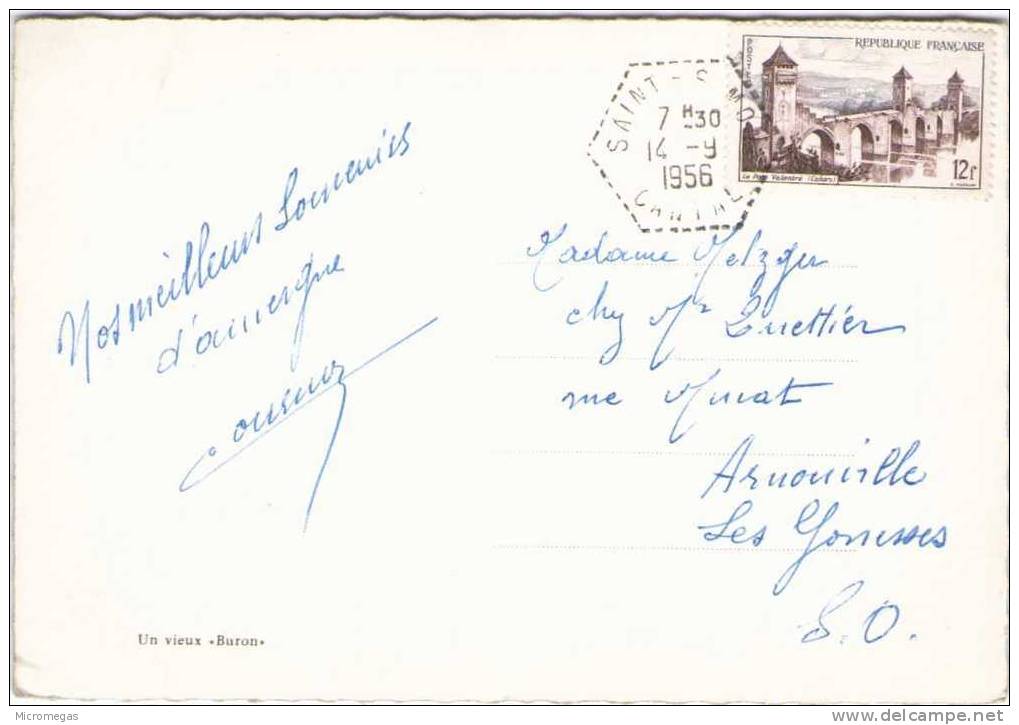 Nos meilleurs Souvenirs
d'auvergne
Un vieux «Buron»
POSTES
REPUBLIQUE FRANÇAISE
Le Pont Valentré (Cahors)
12F
SAINT-SIMO
7 H 30
14 -9
1956
CANTAL
Madame Metzger
chez Mr Quettier
rue Murat
Arnouville
Les Gonesses
S.O.
Micromegas
www.delcampe.net